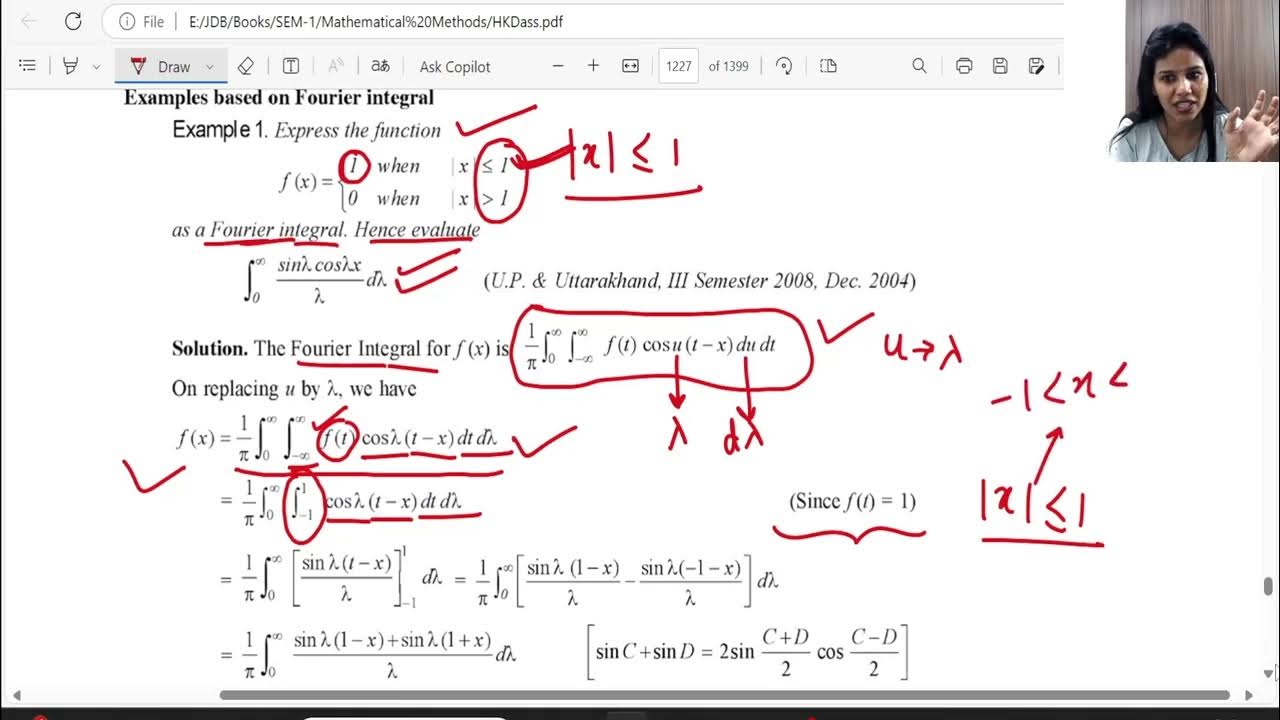 File | E:/JDB/Books/SEM-1/Mathematical%20Methods/HKDass.pdf
Draw aあ Ask Copilot − + 1227 of 1399
Examples based on Fourier integral
Example 1. Express the function
f (x) = {1 when | x | ≤ 1
0 when | x | > 1
|x| ≤ 1
as a Fourier integral. Hence evaluate
∫₀^∞ (sinλ cosλx)/λ dλ (U.P. & Uttarakhand, III Semester 2008, Dec. 2004)
Solution. The Fourier Integral for f (x) is 1/π ∫₀^∞ ∫₋∞^∞ f(t) cos u (t − x) du dt
u → λ
On replacing u by λ, we have
−1 < x <
λ dλ
f (x) = 1/π ∫₀^∞ ∫₋∞^∞ f(t) cosλ (t − x) dt dλ
= 1/π ∫₀^∞ ∫₋₁^1 cosλ (t − x) dt dλ (Since f(t) = 1)
|x| ≤ 1
= 1/π ∫₀^∞ [sin λ (t − x)/λ]₋₁^1 dλ = 1/π ∫₀^∞ [sin λ (1 − x)/λ − sin λ(−1 − x)/λ] dλ
= 1/π ∫₀^∞ (sin λ (1 − x) + sin λ (1 + x))/λ dλ [sin C + sin D = 2sin (C + D)/2 cos (C − D)/2]